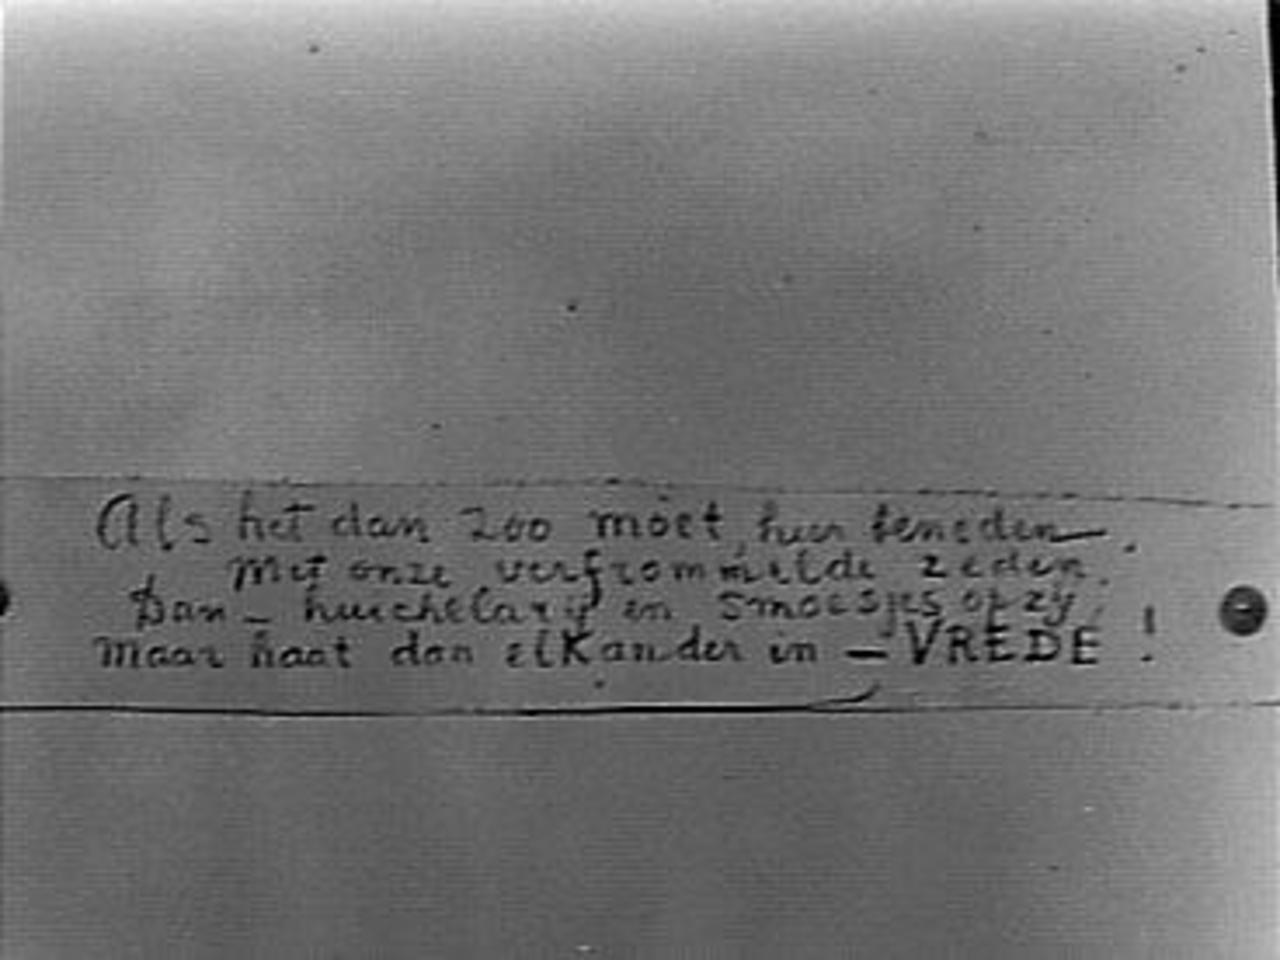 Als het dan zoo moet, hier beneden,
Met onze verfrommelde zeden.
Dan - huichelary en smoesjes op zy,
Maar haat dan elkander in - VREDE !